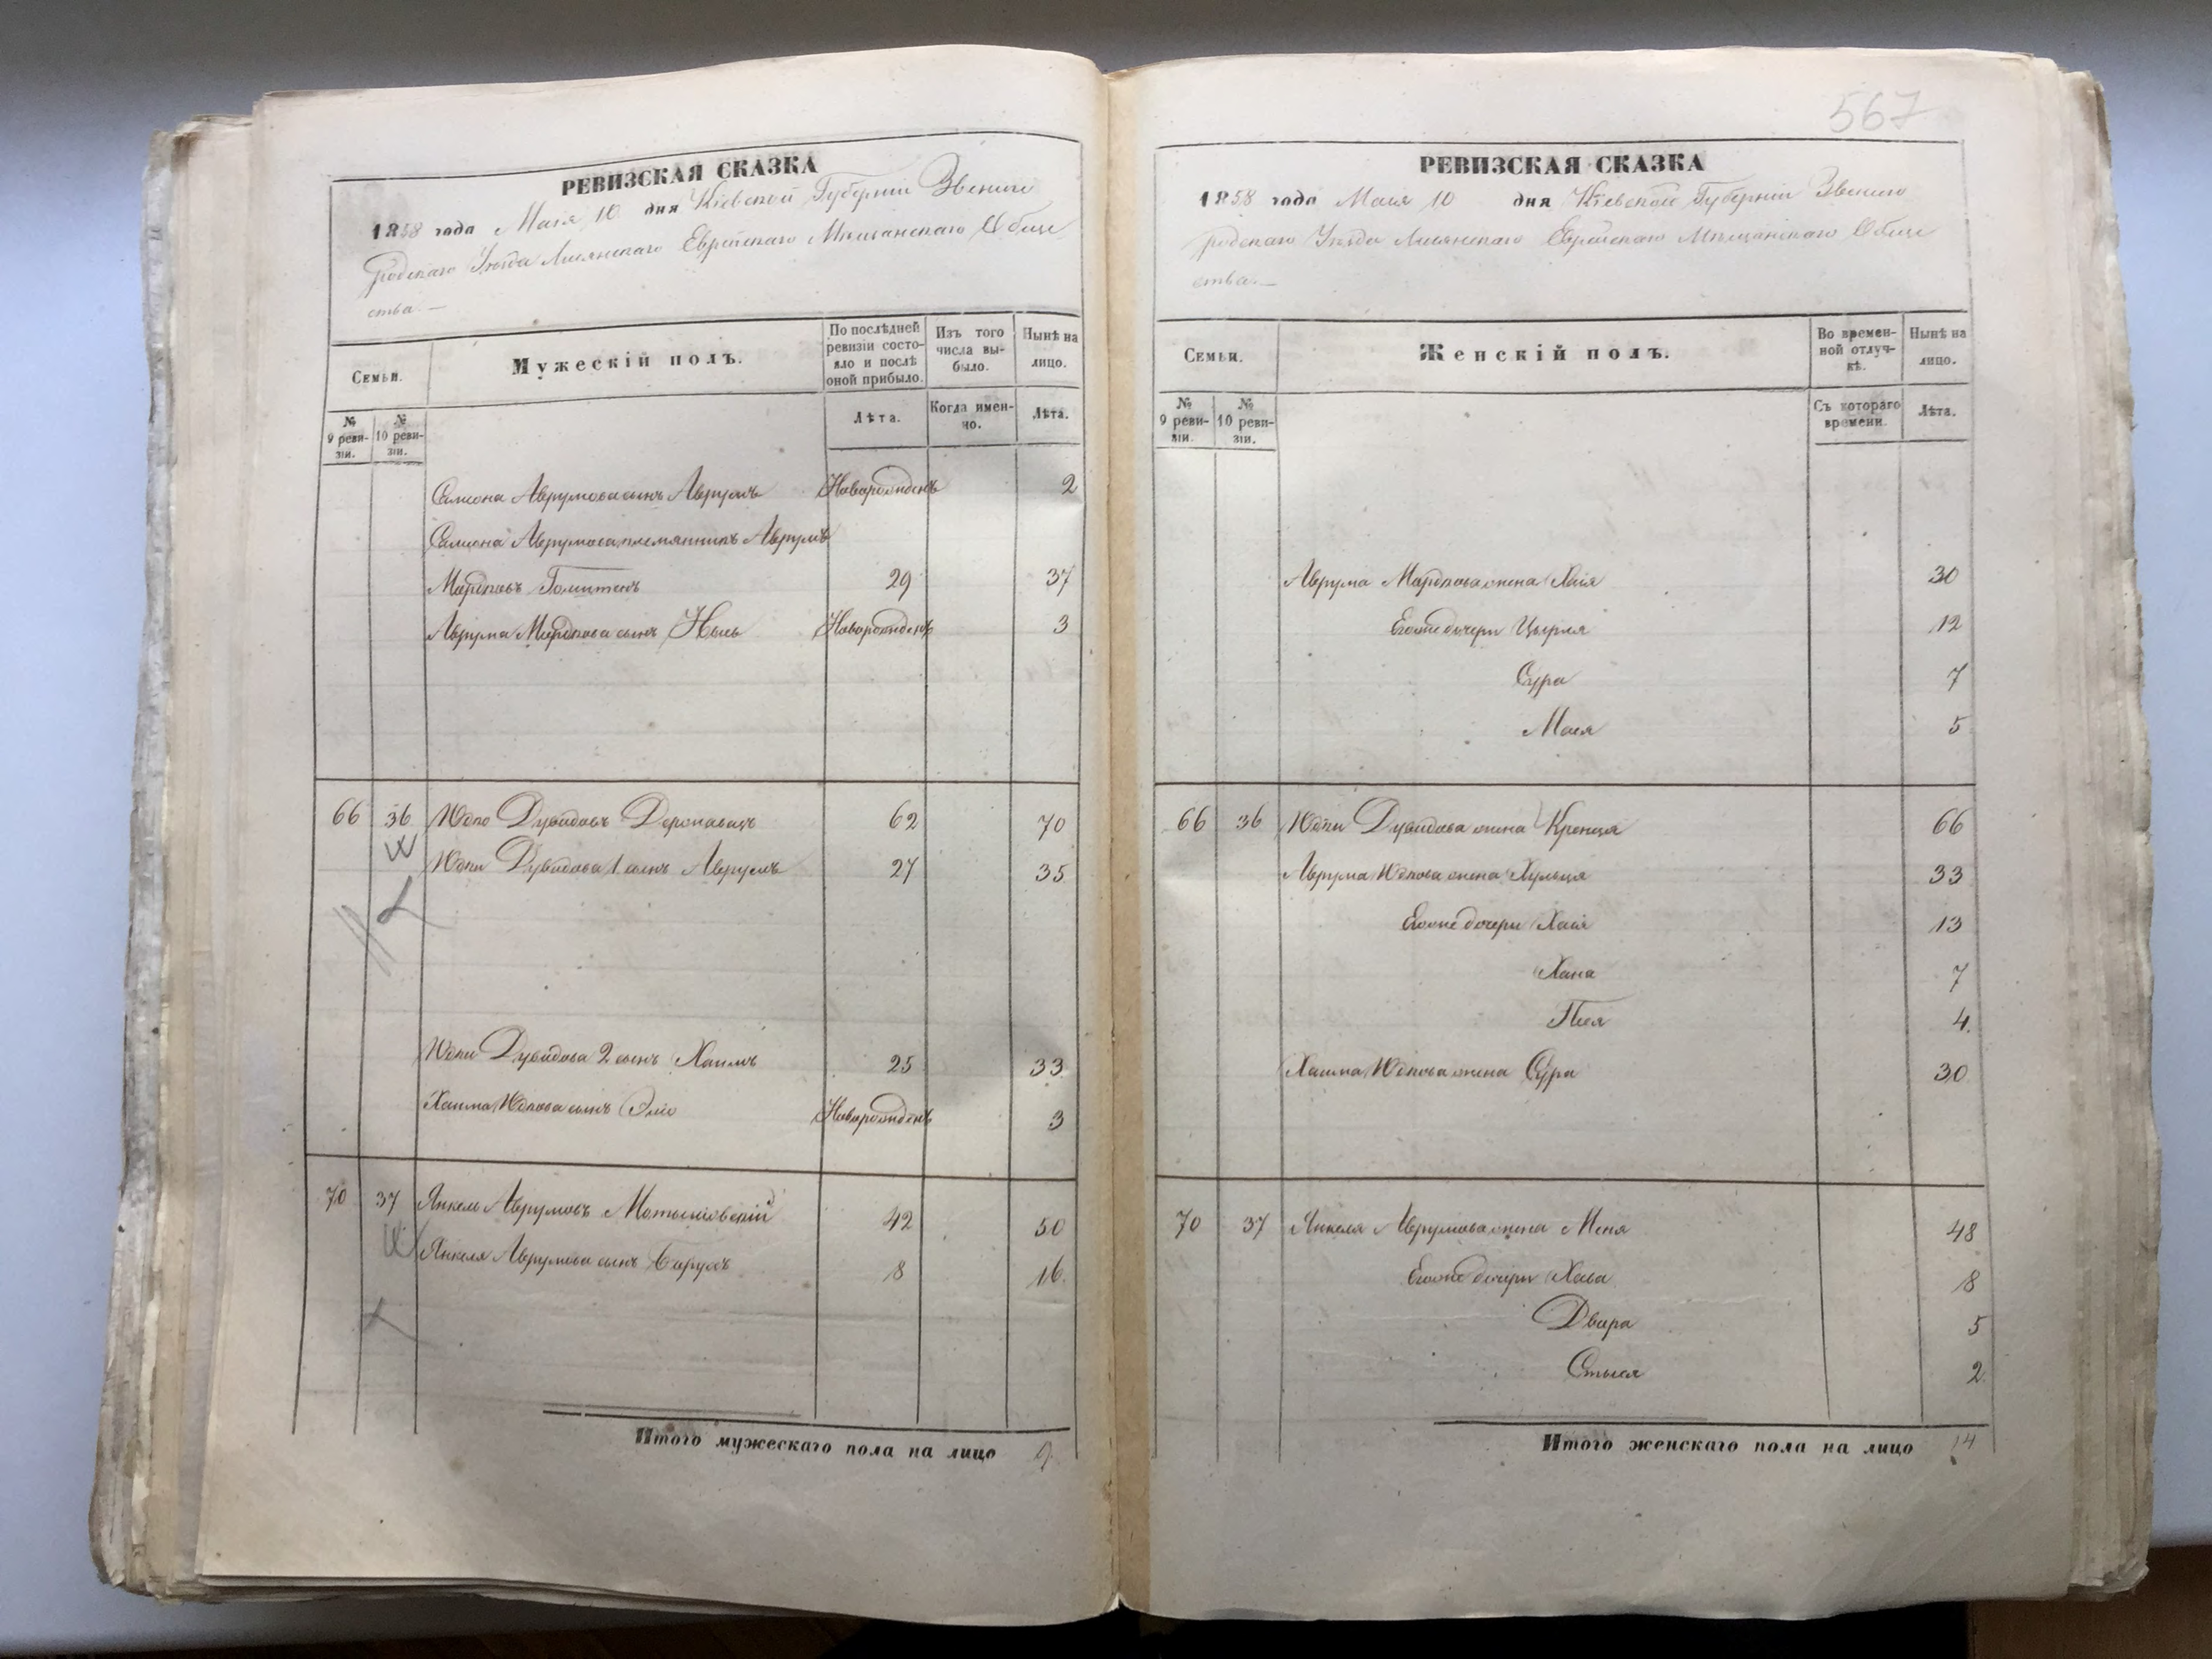 РЕВИЗСКАЯ СКАЗКА
1858 года Маія 10 дня Кіевской Губерніи Звениго
родскаго Уѣзда Лисянскаго Еврейскаго Мѣщанскаго Обще
ства.—
Семьи.
Мужескій полъ.
По послѣдней ревизіи состояло и послѣ оной прибыло.
Изъ того числа выбыло.
Нынѣ на лицо.
№ 9 ревизіи.
№ 10 ревизіи.
Лѣта.
Когда именно.
Лѣта.
Самсона Аврумова сынъ Аврумъ Новорожденъ 2
Самсона Аврумова племянникъ Аврумъ
Мордковъ 29 37
Аврума Мордкова сынъ Новорожденъ 3
66 36 Юдко Дувидовъ 62 70
Юдки Дувидова 1 сынъ Аврумъ 27 35
Юдки Дувидова 2 сынъ Хаимъ 25 33
Хаима Юдкова сынъ Эліо Новорожденъ 3
70 37 Янкель Аврумовъ 42 50
Янкеля Аврумова сынъ Барухъ 8 16
Итого мужескаго пола на лицо 9
567
РЕВИЗСКАЯ СКАЗКА
1858 года Маія 10 дня Кіевской Губерніи Звениго
родскаго Уѣзда Лисянскаго Еврейскаго Мѣщанскаго Обще
ства.—
Семьи.
Женскій полъ.
Во временной отлучкѣ.
Нынѣ на лицо.
№ 9 ревизіи.
№ 10 ревизіи.
Съ котораго времени.
Лѣта.
Аврума Мордкова жена Хаія 30
Егоже дочери Цырля 12
Сура 7
Мася 5
66 36 Юдки Дувидова жена Кренця 66
Аврума Юдкова жена 33
Егоже дочери Хаія 13
Хана 7
Песя 4
Хаима Юдкова жена Сура 30
70 37 Янкеля Аврумова жена Меня 48
Егоже дочери Хава 8
Двора 5
Стыся 2
Итого женскаго пола на лицо 14